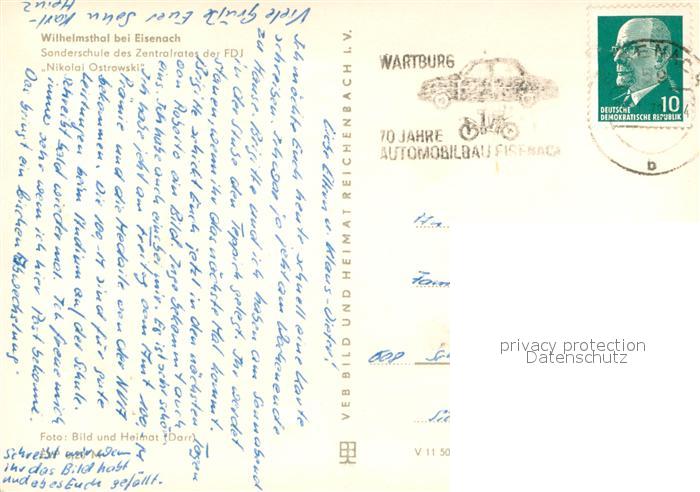 Wilhelmsthal bei Eisenach
Sonderschule des Zentralrates der FDJ
„Nikolai Ostrowski"
Liebe Eltern u. Klaus-Dieter!
Ich möchte Euch heute schnell eine Karte
schreiben. Ich war ja jetzt am Wochenende
zu Hause. Brigitte und ich haben am Sonnabend
in der Stube den Teppich gelegt. Ihr werdet
staunen wenn ihr das nächste Mal kommt.
Brigitte schickt Euch jetzt in den nächsten Tagen
von Roberto ein Bild. Inge bekommt auch
eins. Ich habe auch eins bei mir. Es ist sehr schön.
Ich habe jetzt am Freitag vom Amt 100,- M
Prämie und die Medaille von der NVA
bekommen. Die 100,- M sind für gute
Leistungen beim Studium auf der Schule.
Schreibt bald wieder mal. Ich freue mich
immer sehr wenn ich hier Post bekomme.
Das bringt ein bischen Abwechslung.
Viele Grüße Euer Sohn Karl-
Heinz
Schreibt mir wenn
ihr das Bild habt
und ob es Euch gefällt.
Foto: Bild und Heimat (Darr)
VEB BILD UND HEIMAT REICHENBACH I. V.
V 11 50
WARTBURG
70 JAHRE
AUTOMOBILBAU EISENACH
b
DEUTSCHE
DEMOKRATISCHE REPUBLIK
10
Fam
privacy protection
Datenschutz